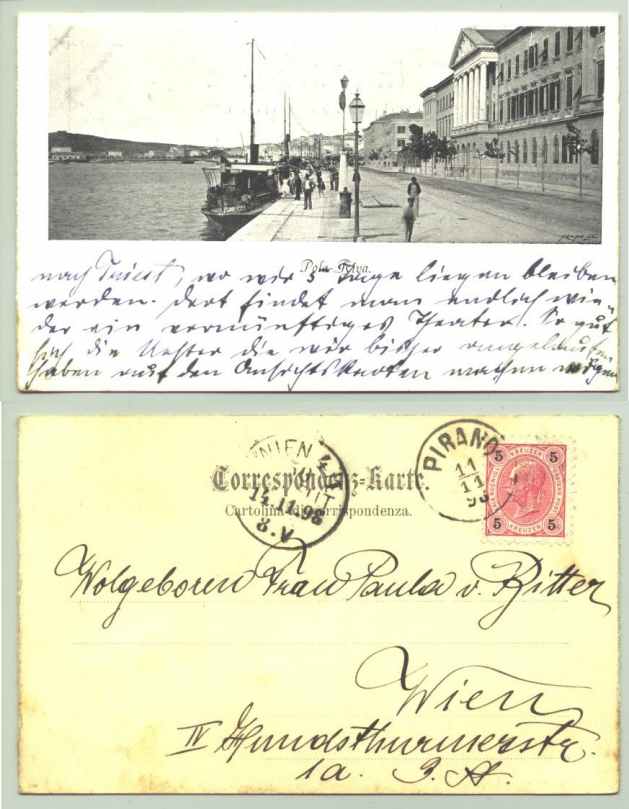 Pola-Riva.
nach Triest, wo wir 3 Tage liegen bleiben
werden. Dort findet man endlich wie-
der ein vernünftiges Theater. So gut
sich die Nester die wir bisher angelaufen
haben auf den Ansichtskarten machen mögen
WIEN 4/1
14.11.98
8.V
PIRANO
11
11
98
Correspondenz-Karte.
Cartolina di corrispondenza.
5 KREUZER 5
5 KREUZER 5
Wolgeboren Frau Paula v. Ritter
Wien
IV Hundsthurmerstr.
1a. P. H.